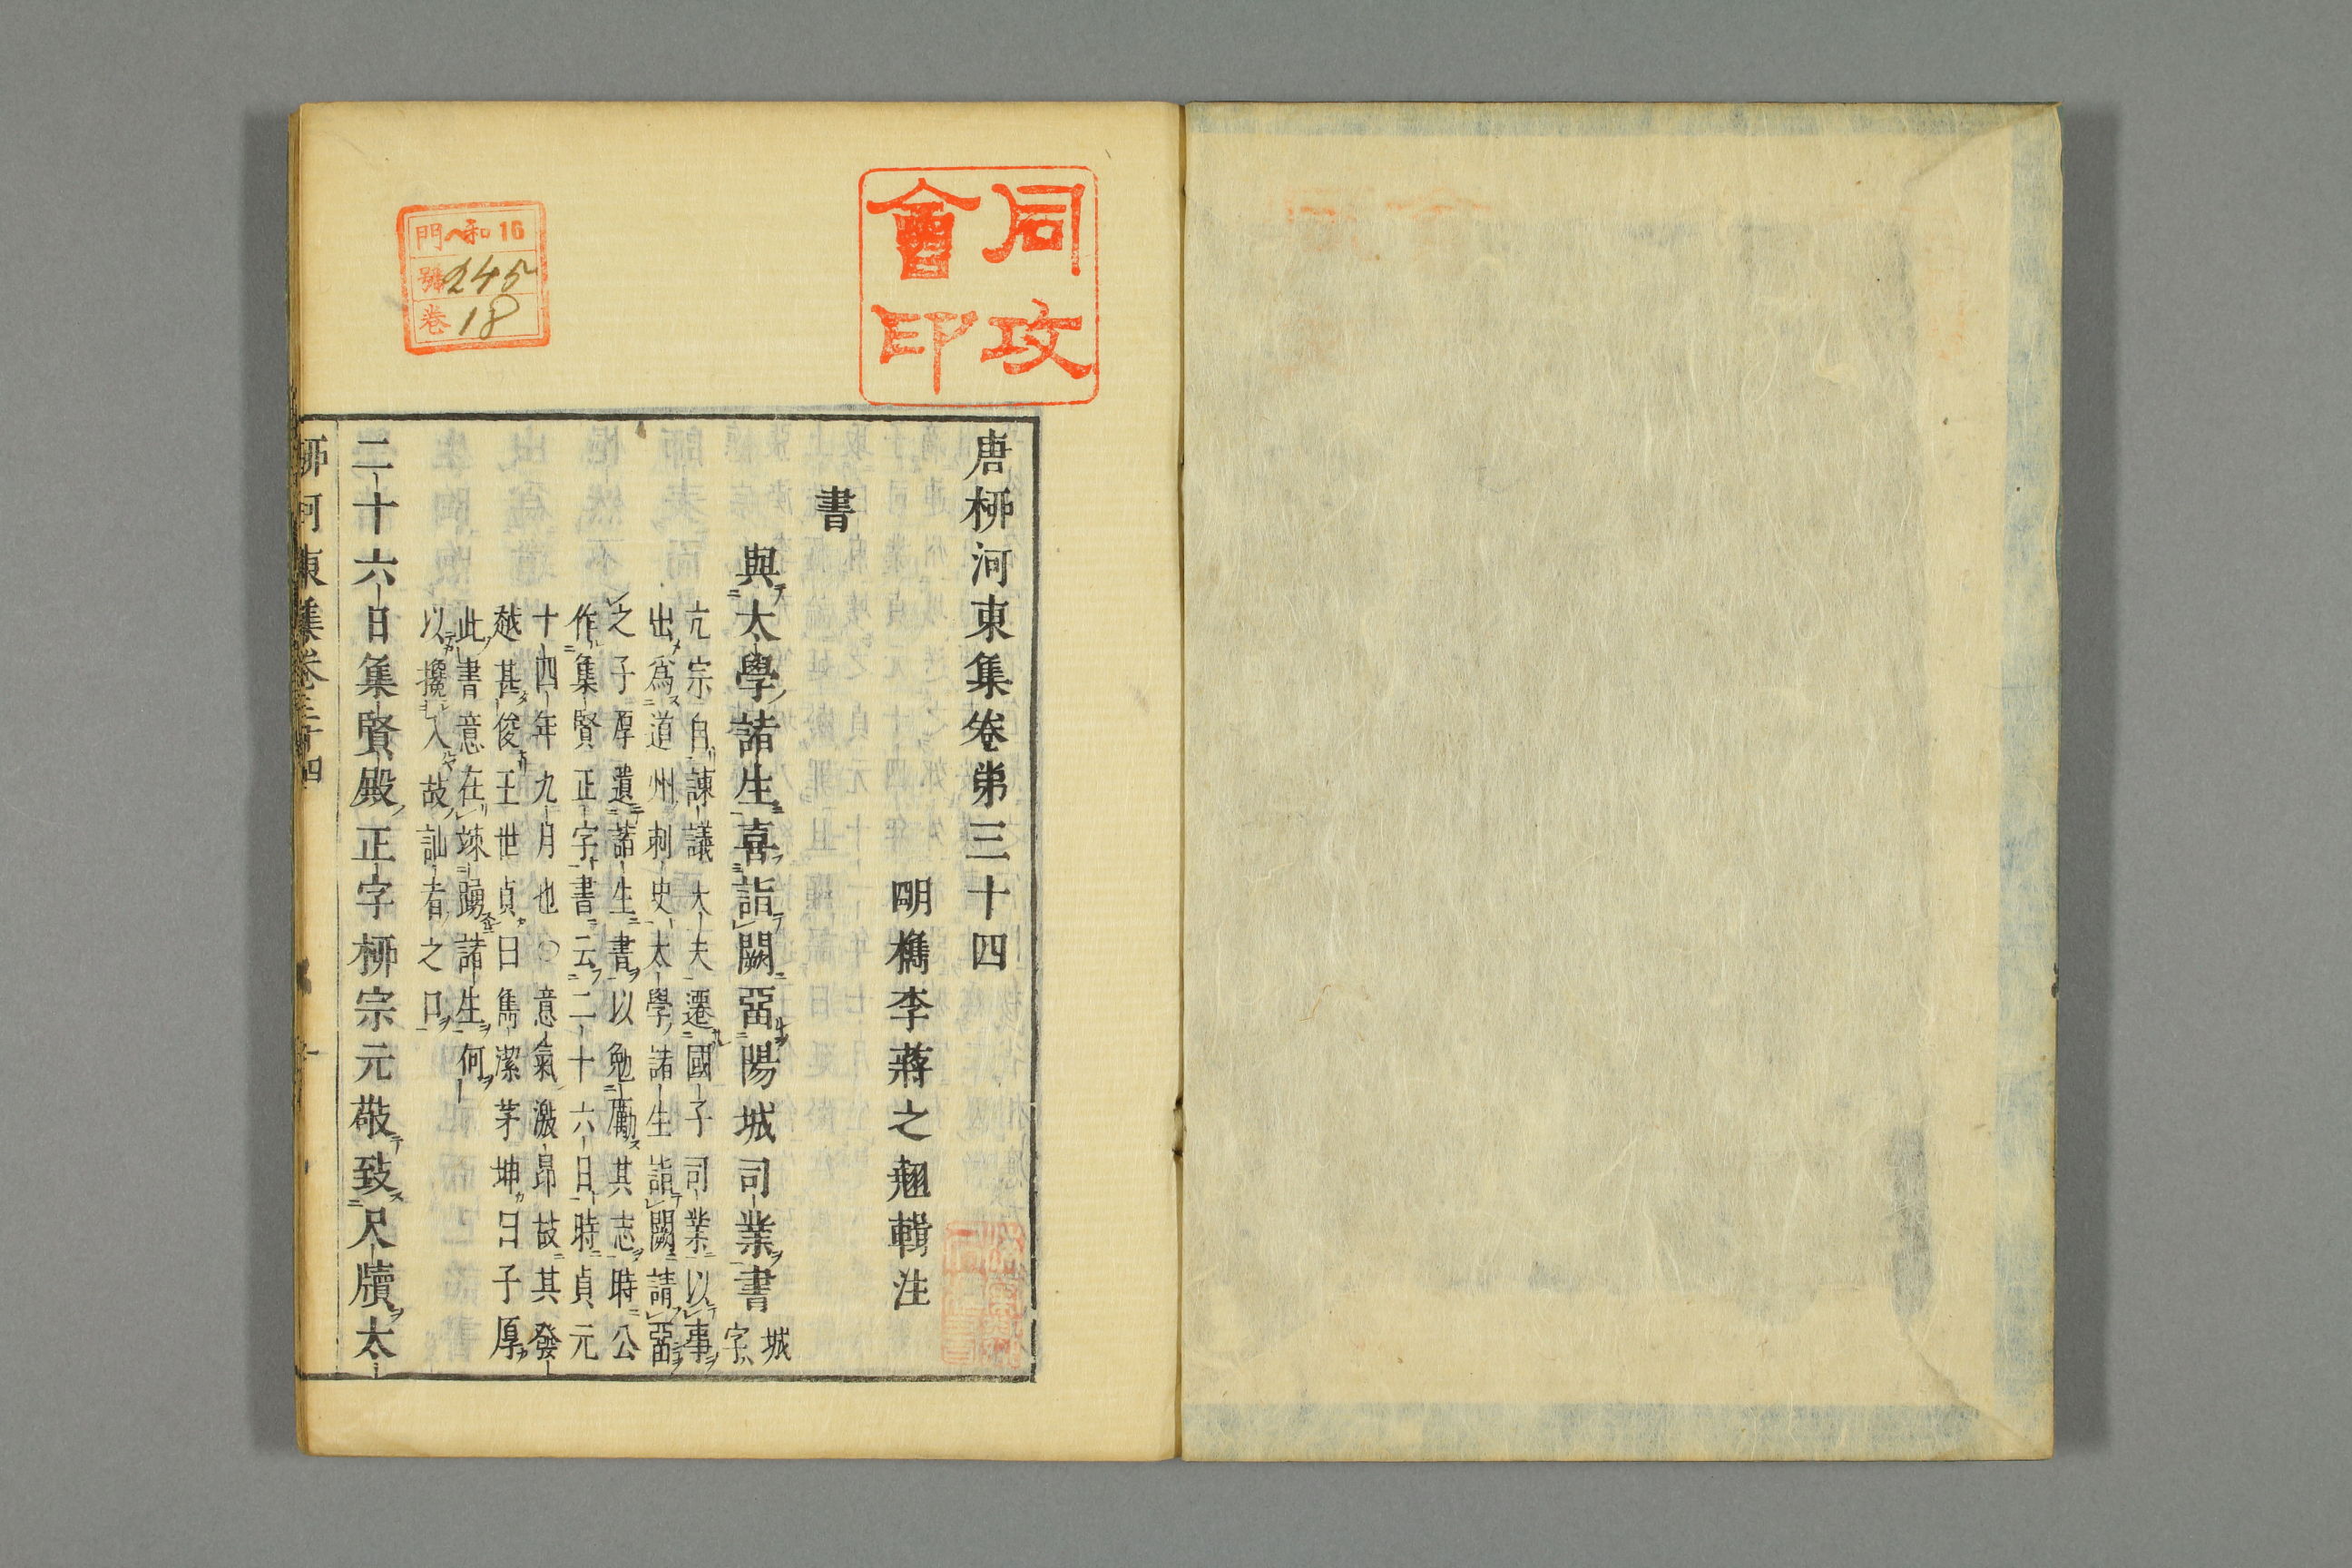 同攻
會印
門 ヘ和16
號 245
卷 18
唐柳河東集卷第三十四
明檇李蔣之翹輯注
書
與太學諸生喜詣闕畱陽城司業書 城字
亢宗自諫議大夫遷國子司業以事
出爲道州刺史太學諸生詣闕請畱
之子厚遺諸生書以勉勵其志時公
作集賢正字書云二十六日時貞元
十四年九月也○意氣激昂故其發
越甚俊王世貞曰雋潔茅坤曰子厚
此書意在竦踴諸生何
以攙入故訕者之口
二十六日集賢殿正字柳宗元敬致尺牘太
柳河東集卷三十四